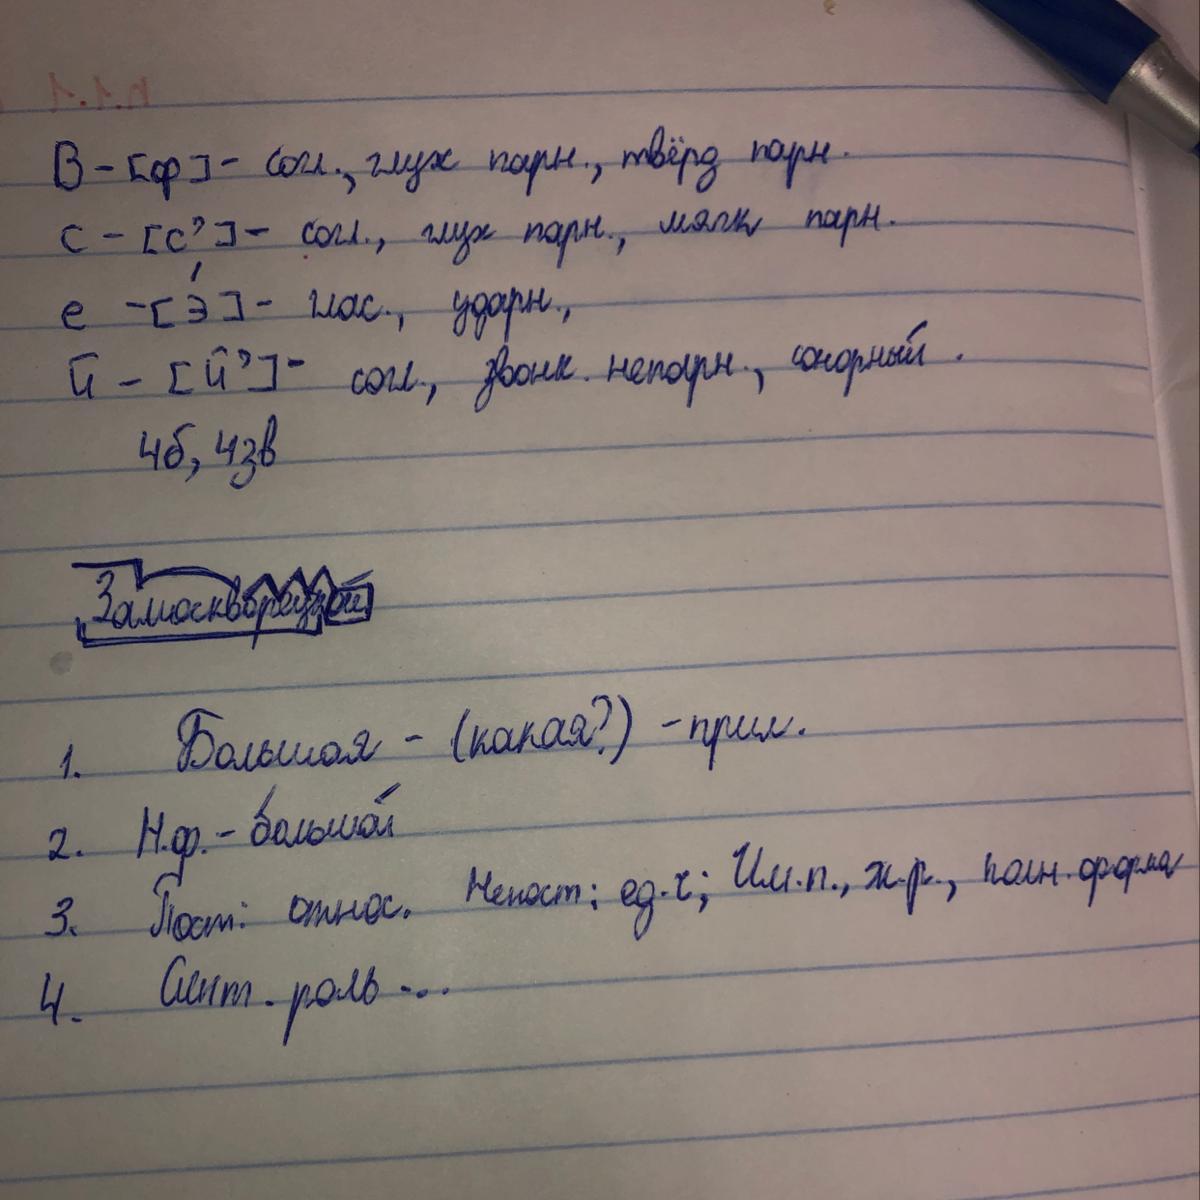 В - [ф] - согл., глух парн., твёрд парн.
с - [с'] - согл., глух парн., мягк парн.
е - [э́] - глас., ударн.,
й - [й'] - согл., звонк. непарн., сонорный.
4б, 4зв
1. Большая - (какая?) - прил.
2. Н.ф. - большой
3. Пост: относ. Непост: ед.ч; Им.п., ж.р., полн. форма
4. Синт. роль ...